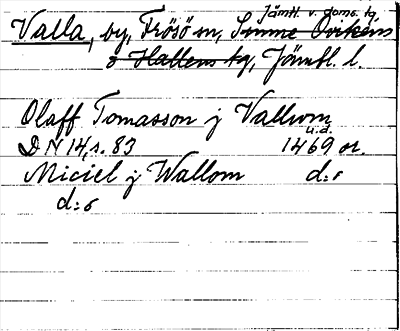 Jämtl. v. doms. tg,
Valla, by, Frösö sn, Sunne Ovikens
o Hallens tg, Jämtl. l.
Olaff Tomasson j Vallwm
u.d.
DN 14, s. 83 1469 or.
Miciel j Wallom d:o
d:o